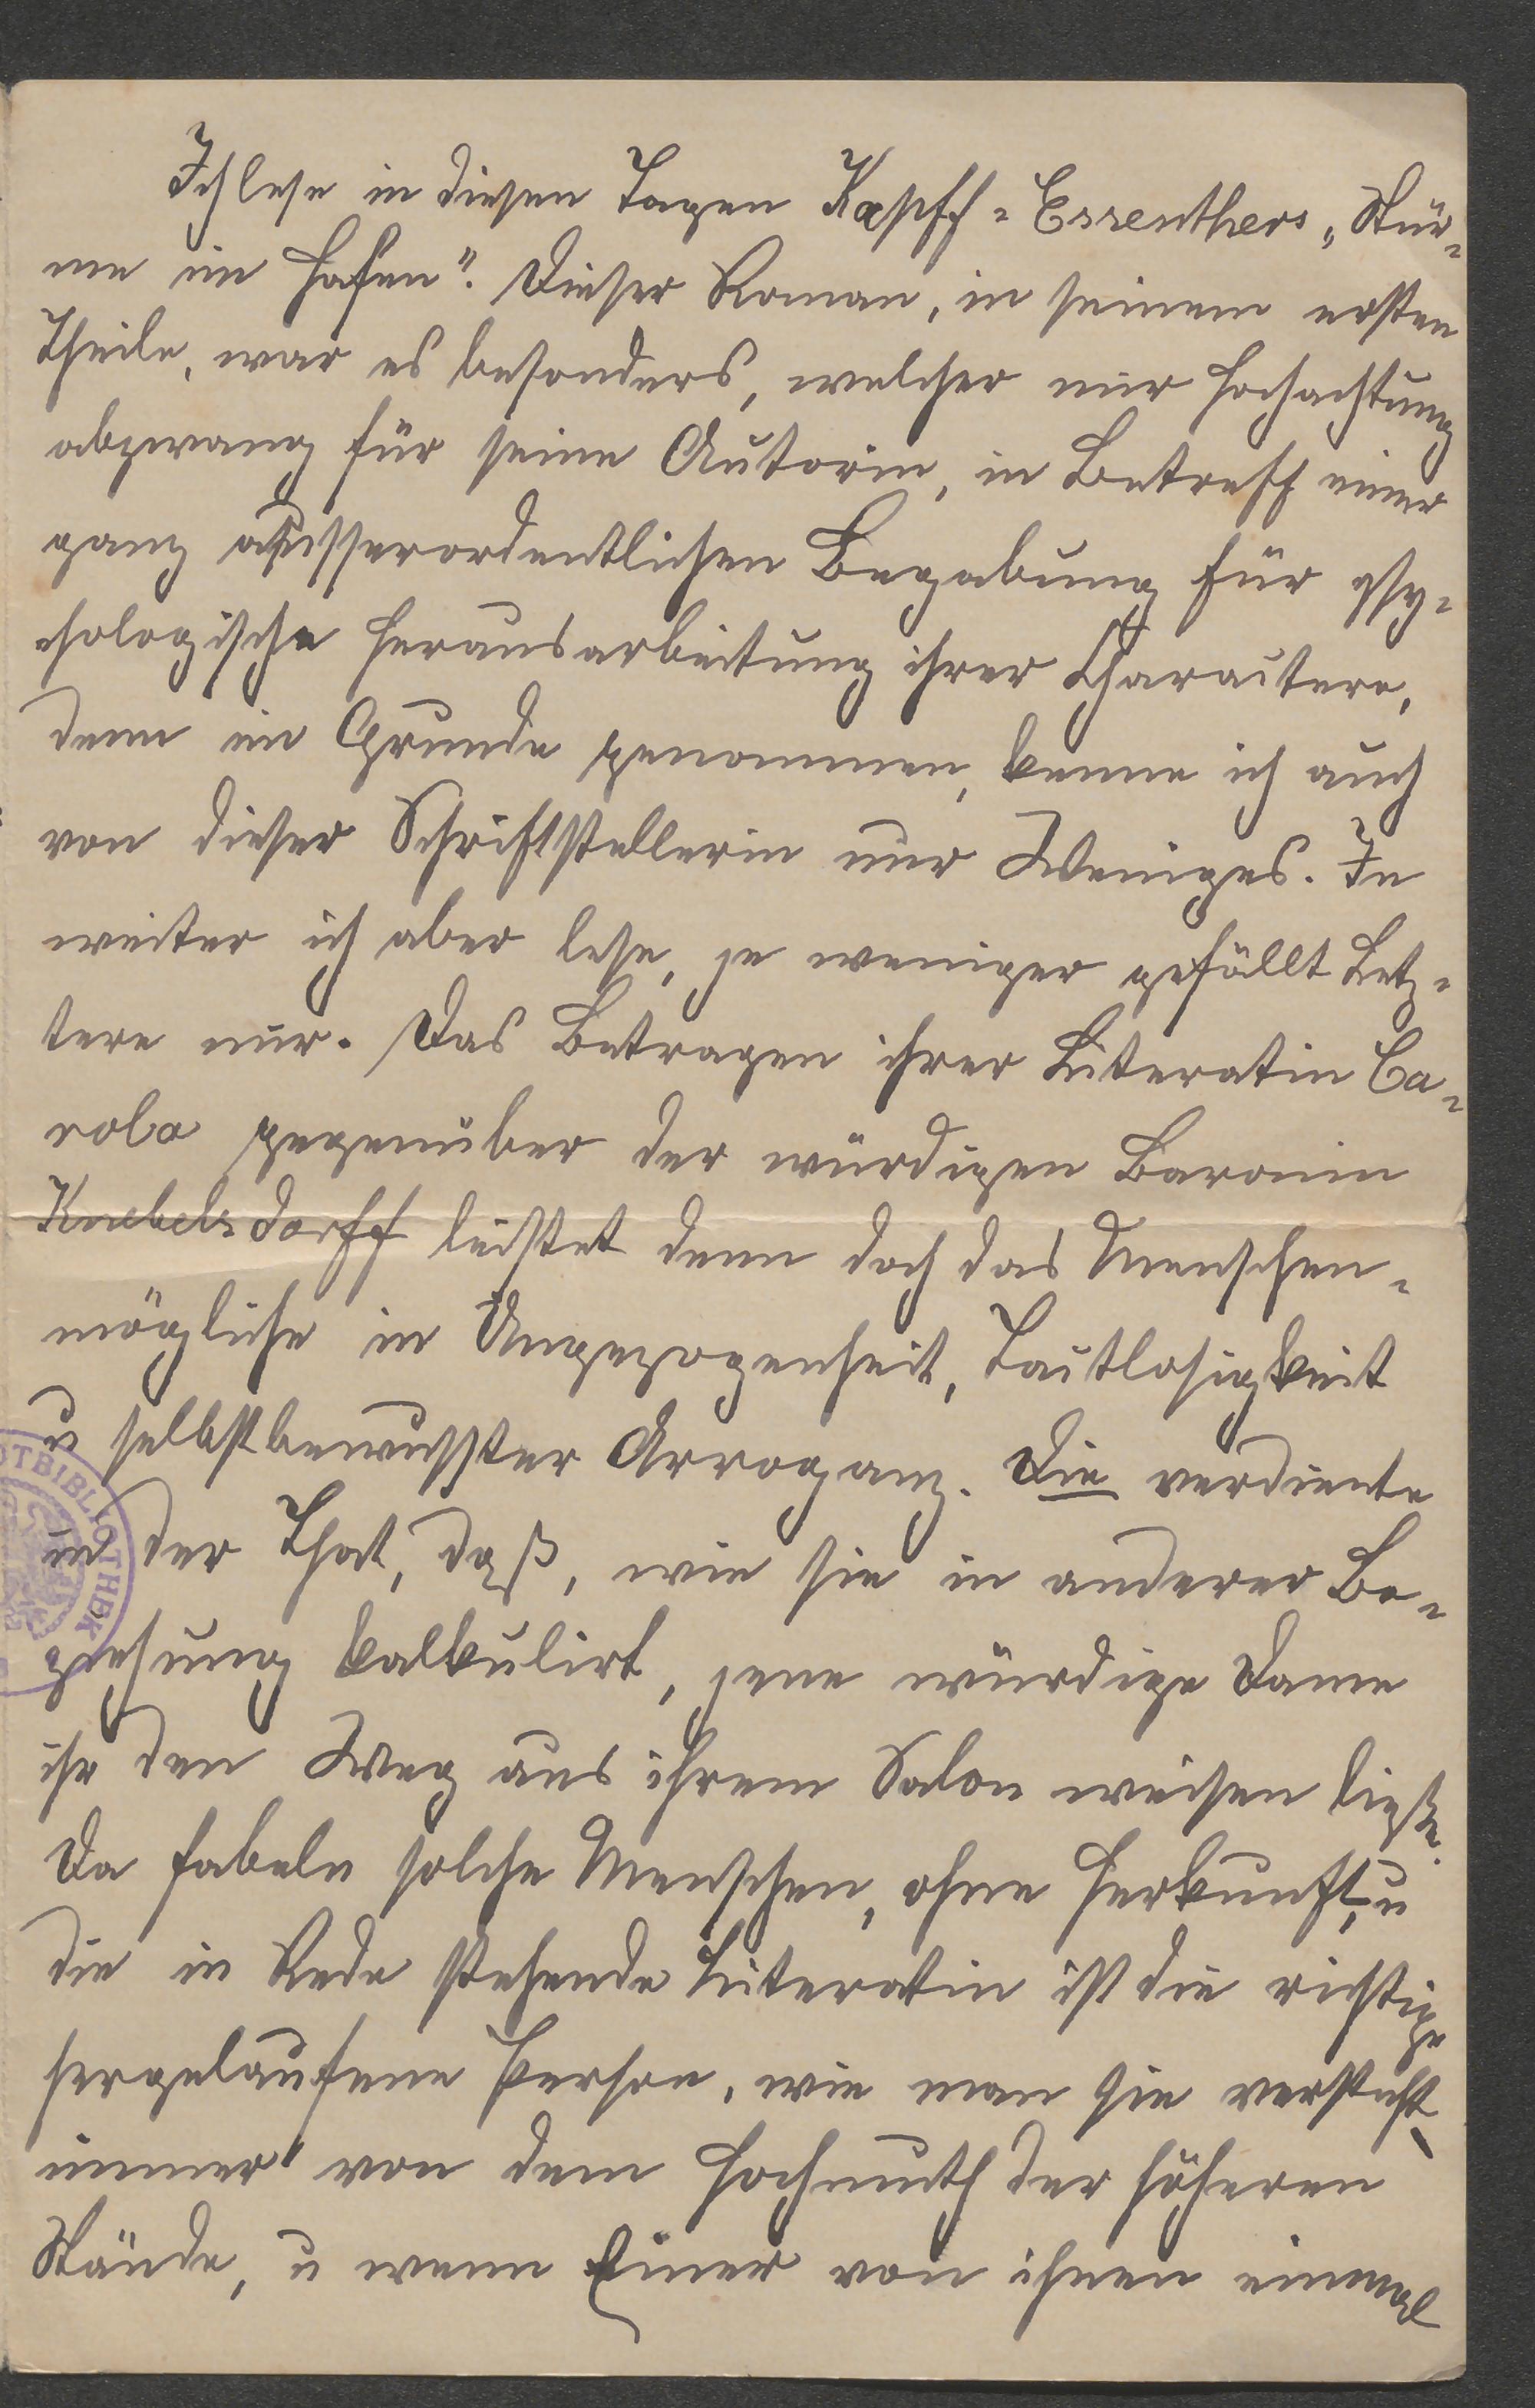 Ich lese in diesen Tagen Kapff-Essenthers „Stür-
me im Hafen". Dieser Roman, in seinem ersten
Theile, war es besonders, welcher mir Hochachtung
abzwang für seine Autorin, in Betreff einer
ganz ausserordentlichen Begabung für psy-
chologische Herausarbeitung ihrer Charactere,
denn im Grunde genommen, kenne ich auch
von dieser Schriftstellerin nur Weniges. Je
weiter ich aber lese, je weniger gefällt Letz-
tere mir. Das Betragen ihrer Literatin Ca-
rola gegenüber der würdigen Baronin
Knebelsdorff leistet denn doch das Menschen-
mögliche in Ungezogenheit, Tactlosigkeit
u selbstbewusster Arroganz. Die verdiente
in der That, daß, wie sie in anderer Be-
ziehung kalkulirt, jene würdige Dame
ihr den Weg aus ihrem Salon weisen ließe.
Da fabeln solche Menschen, ohne Herkunft, u
die in Rede stehende Literatin ist die richtige
hergelaufene Person, wie man sie versteht,
immer von dem Hochmuth der höheren
Stände, u wenn Einer von ihnen einmal
OTBIBLIOTHEK